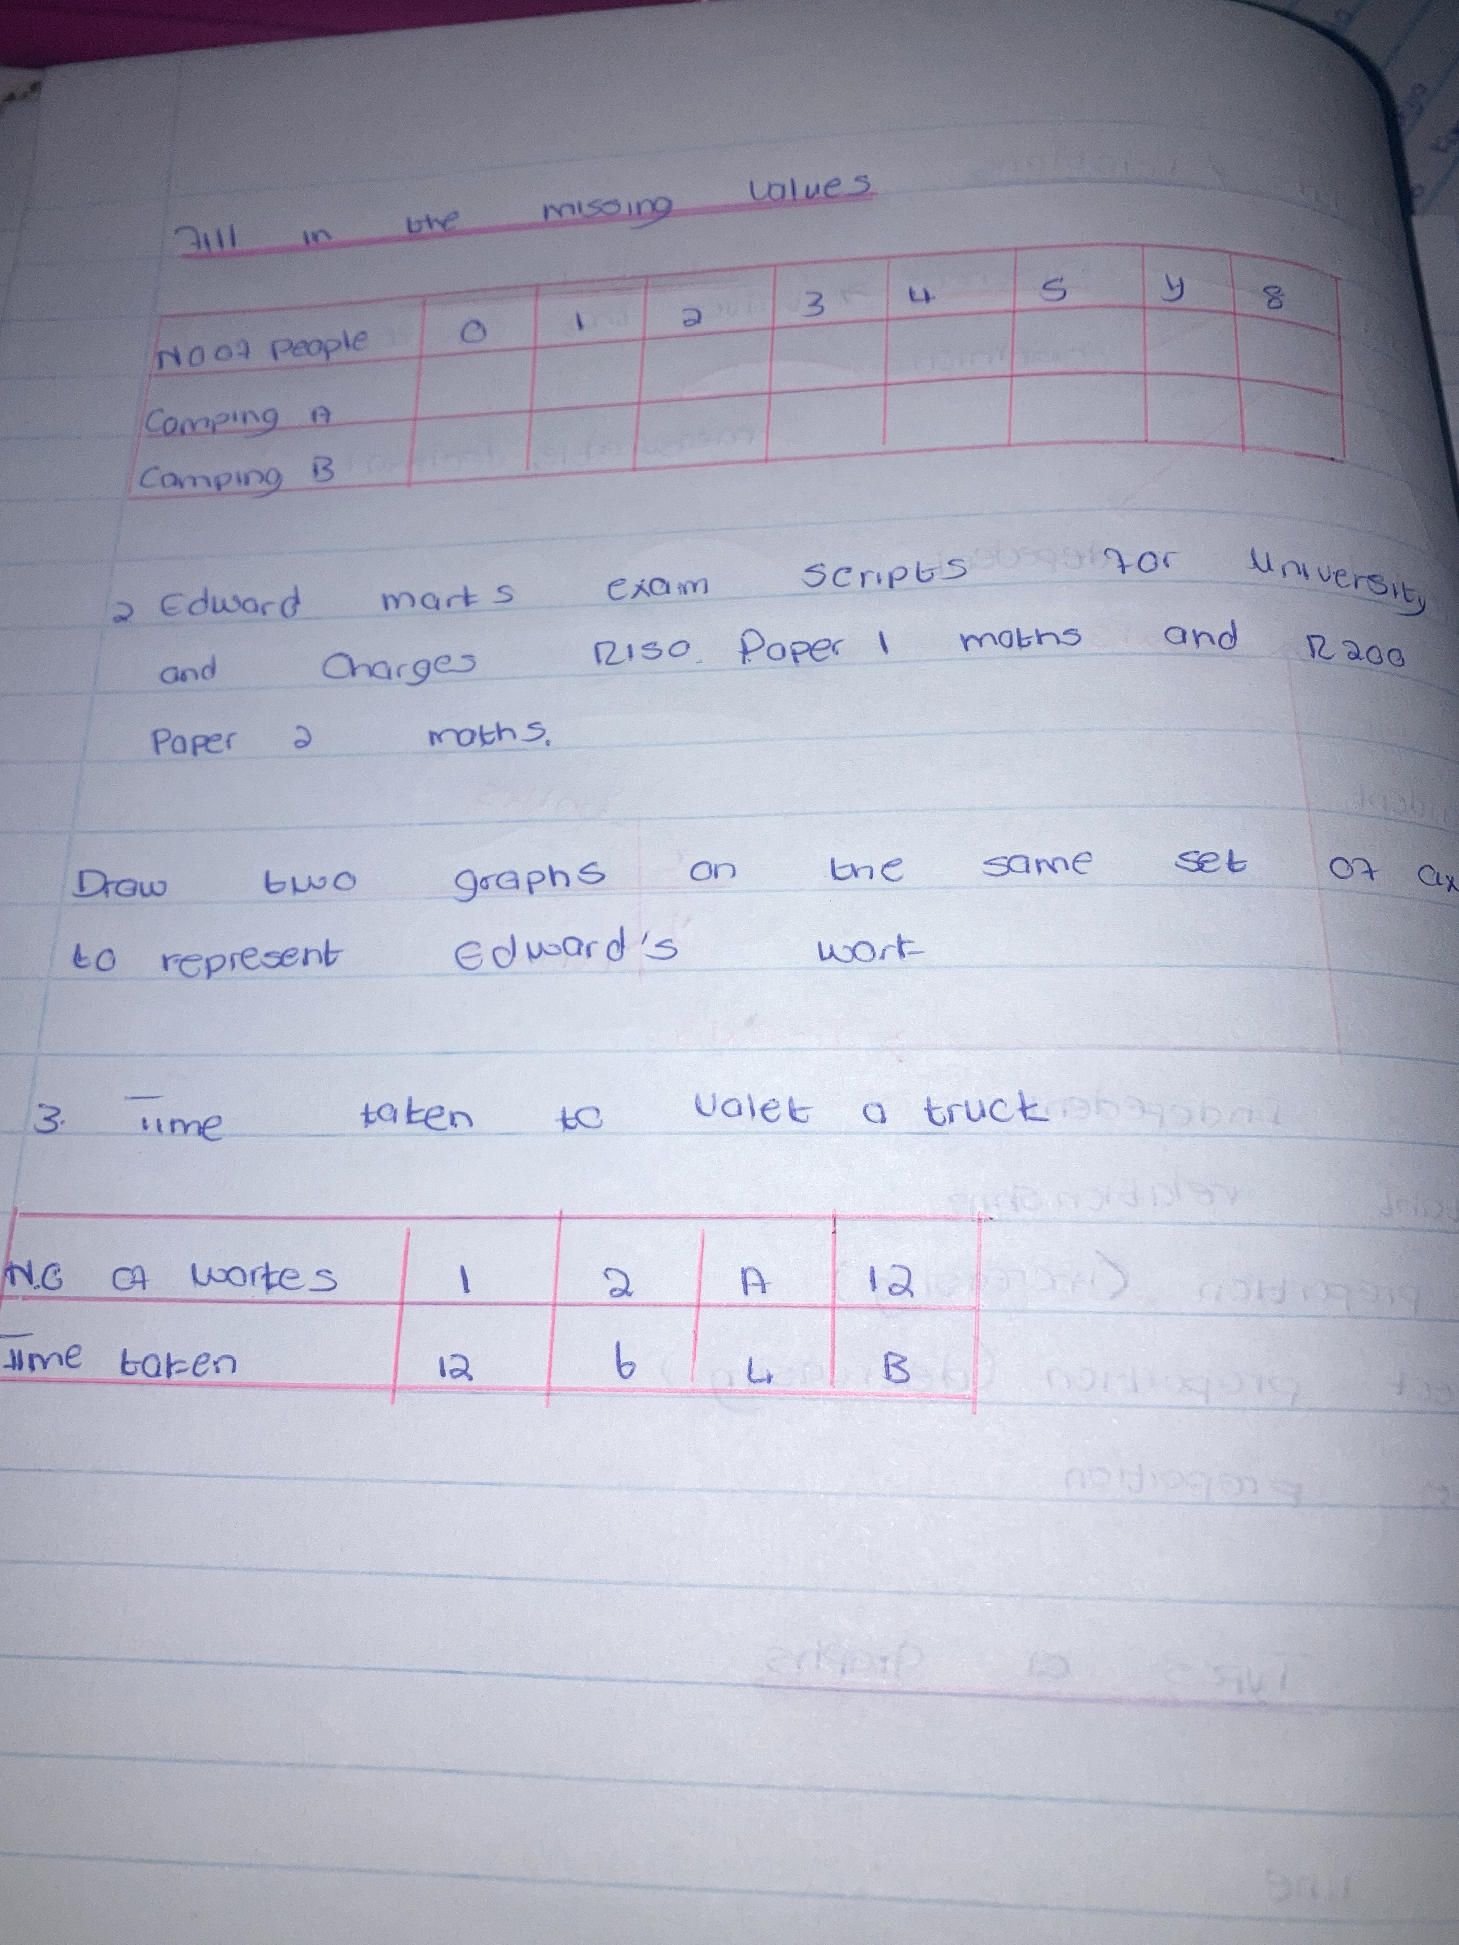 Fill in the missing values
No of people 0 1 2 3 4 5 y 8
Camping A
Camping B
2 Edward marks exam scripts for University
and Charges R150. Paper 1 maths and R200
Paper 2 maths.
Draw two graphs on the same set of ax
to represent Edward's work
3. Time taken to valet a truck
N.O of workes 1 2 A 12
Time taken 12 6 4 B